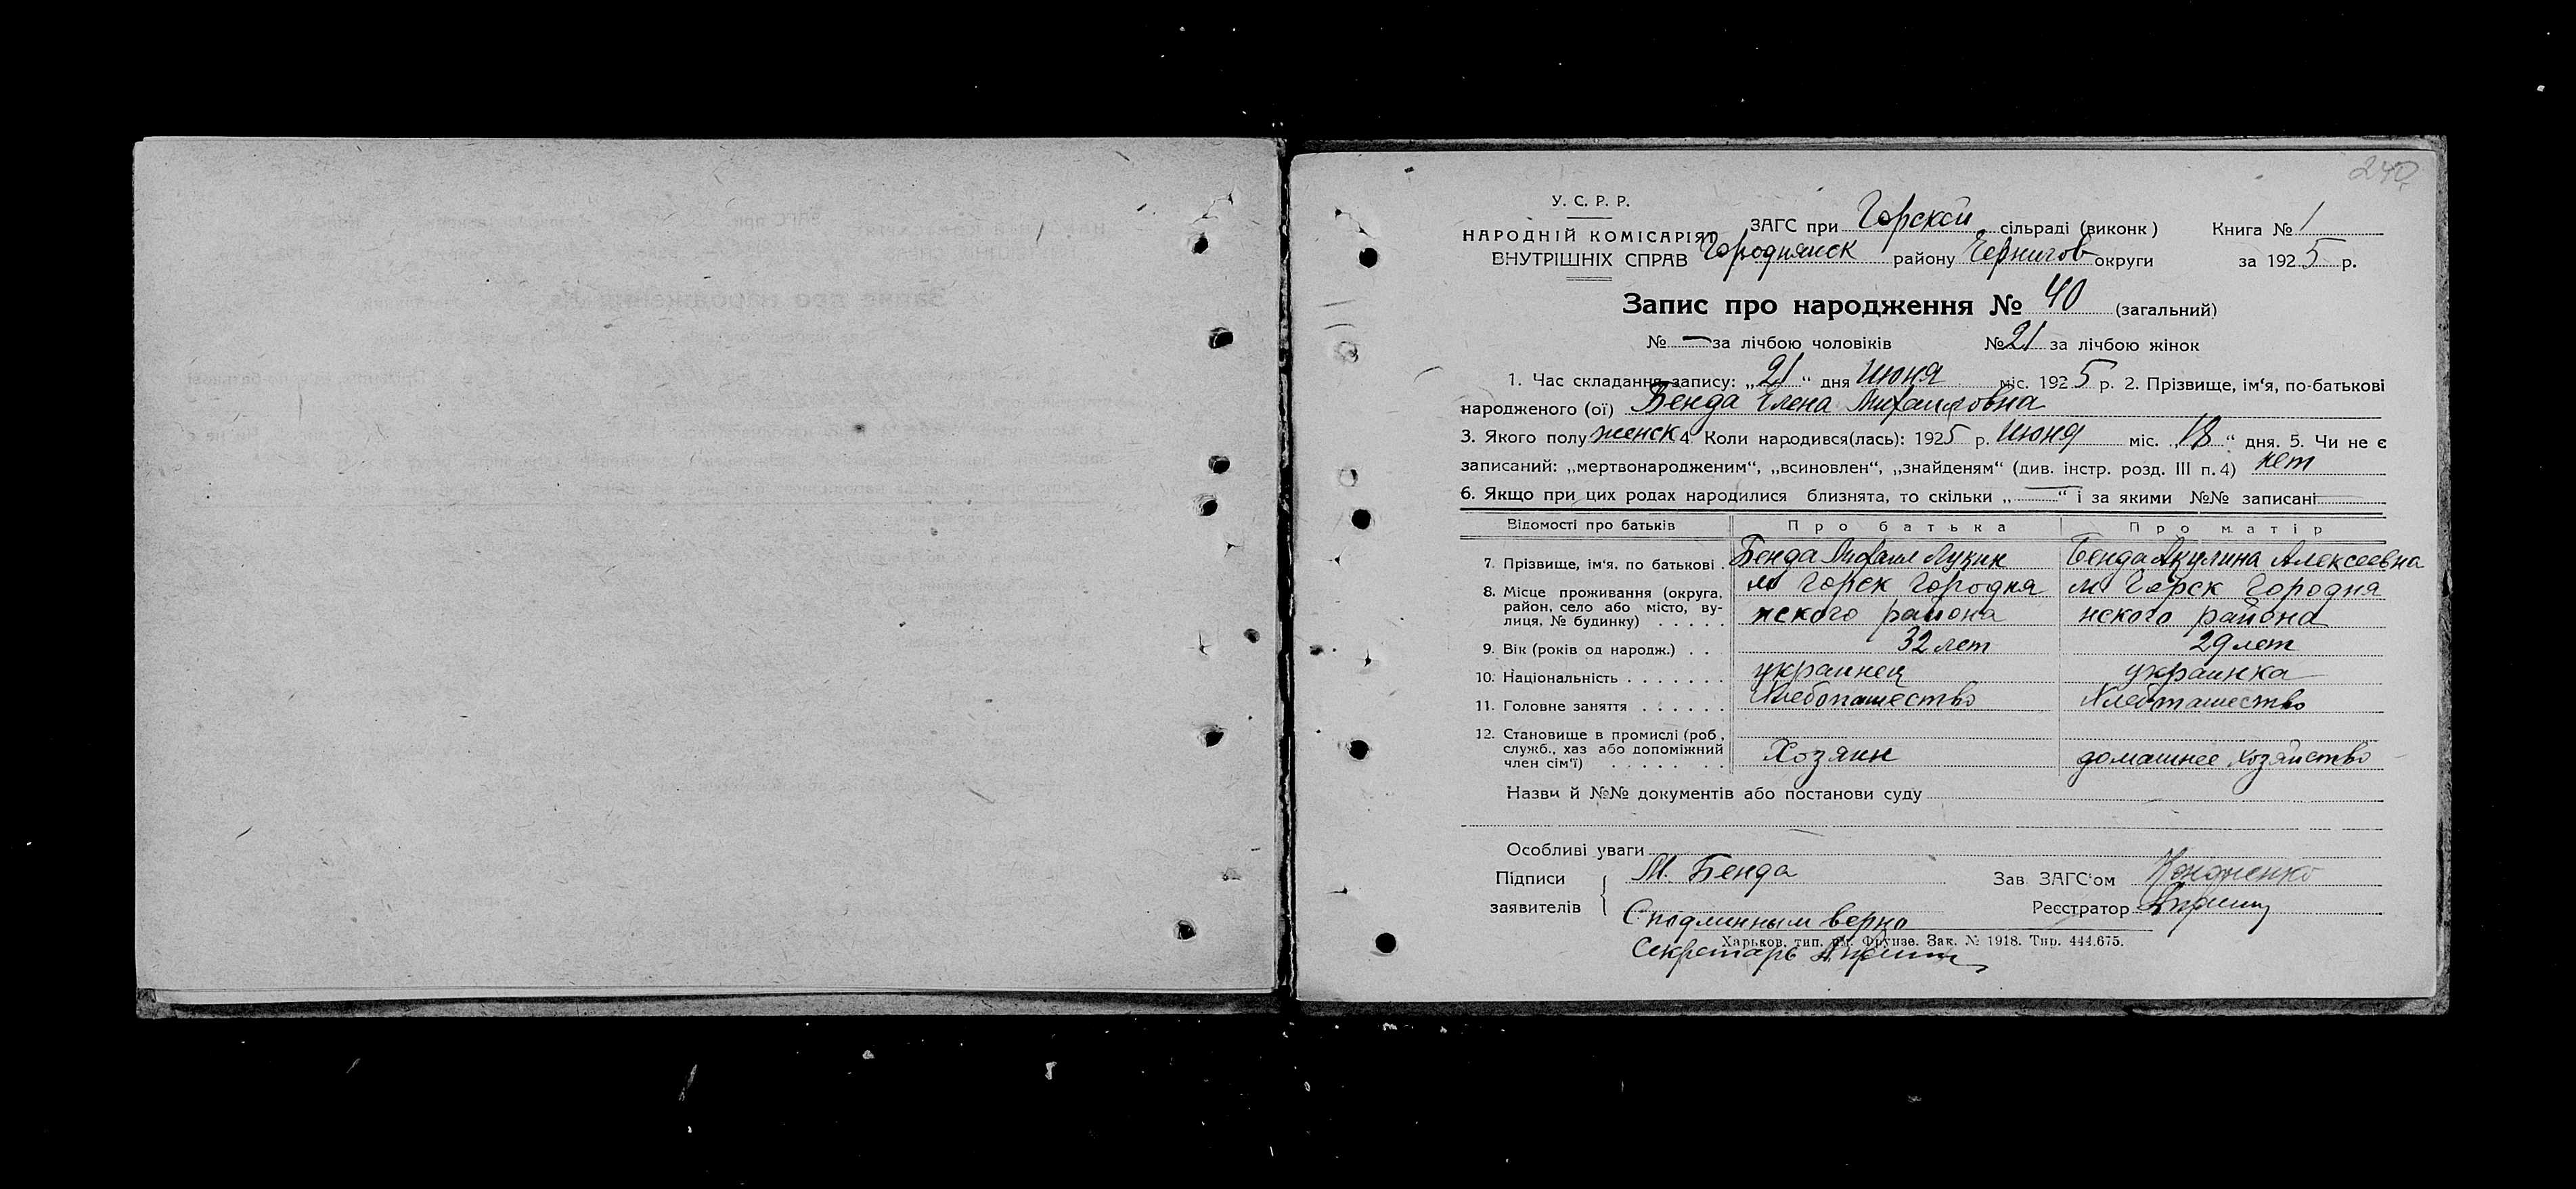 240
У. С. Р. Р.
НАРОДНІЙ КОМІСАРІЯТ
ВНУТРІШНІХ СПРАВ
ЗАГС при Горской сільраді (виконк) Книга № 1
Городнянск району Чернигов округи за 1925 р.
Запис про народження № 40 (загальний)
№ — за лічбою чоловіків № 21 за лічбою жінок
1. Час складання запису: „21“ дня Июня міс. 1925 р. 2. Прізвище, ім‘я, по-батькові
народженого (ої) Бенда Елена Михайловна
3. Якого полу женск 4. Коли народився(лась): 1925 р. Июня міс. „18“ дня. 5. Чи не є
записаний: „мертвонародженим“, „всиновлен“, „знайденям“ (див. інстр. розд. III п. 4) нет
6. Якщо при цих родах народилися близнята, то скільки „—“ і за якими №№ записані
Відомості про батьків Про батька Про матір
7. Прізвище, ім‘я, по батькові . Бенда Михаил Лукич Бенда Акулина Алексеевна
8. Місце проживання (округа, м Горск Городня м Горск Городня
район, село або місто, ву-
лиця, № будинку) . . . . . нского района нского района
9. Вік (років од народж.) . . 32 лет 29 лет
10. Національність . . . . . . . украинец украинка
11. Головне заняття . . . . . . Хлебопашество Хлебопашество
12. Становище в промислі (роб,
служб., хаз або допоміжний
член сім‘ї) . . . . . . . . Хозяин домашнее хозяйство
Назви й №№ документів або постанови суду
Особливі уваги
Підписи М. Бенда Зав ЗАГС‘ом
заявителів Реєстратор
С подлинным верно
Харьков, тип. им. Фрунзе. Зак. № 1918. Тир. 444.675.
Секретарь